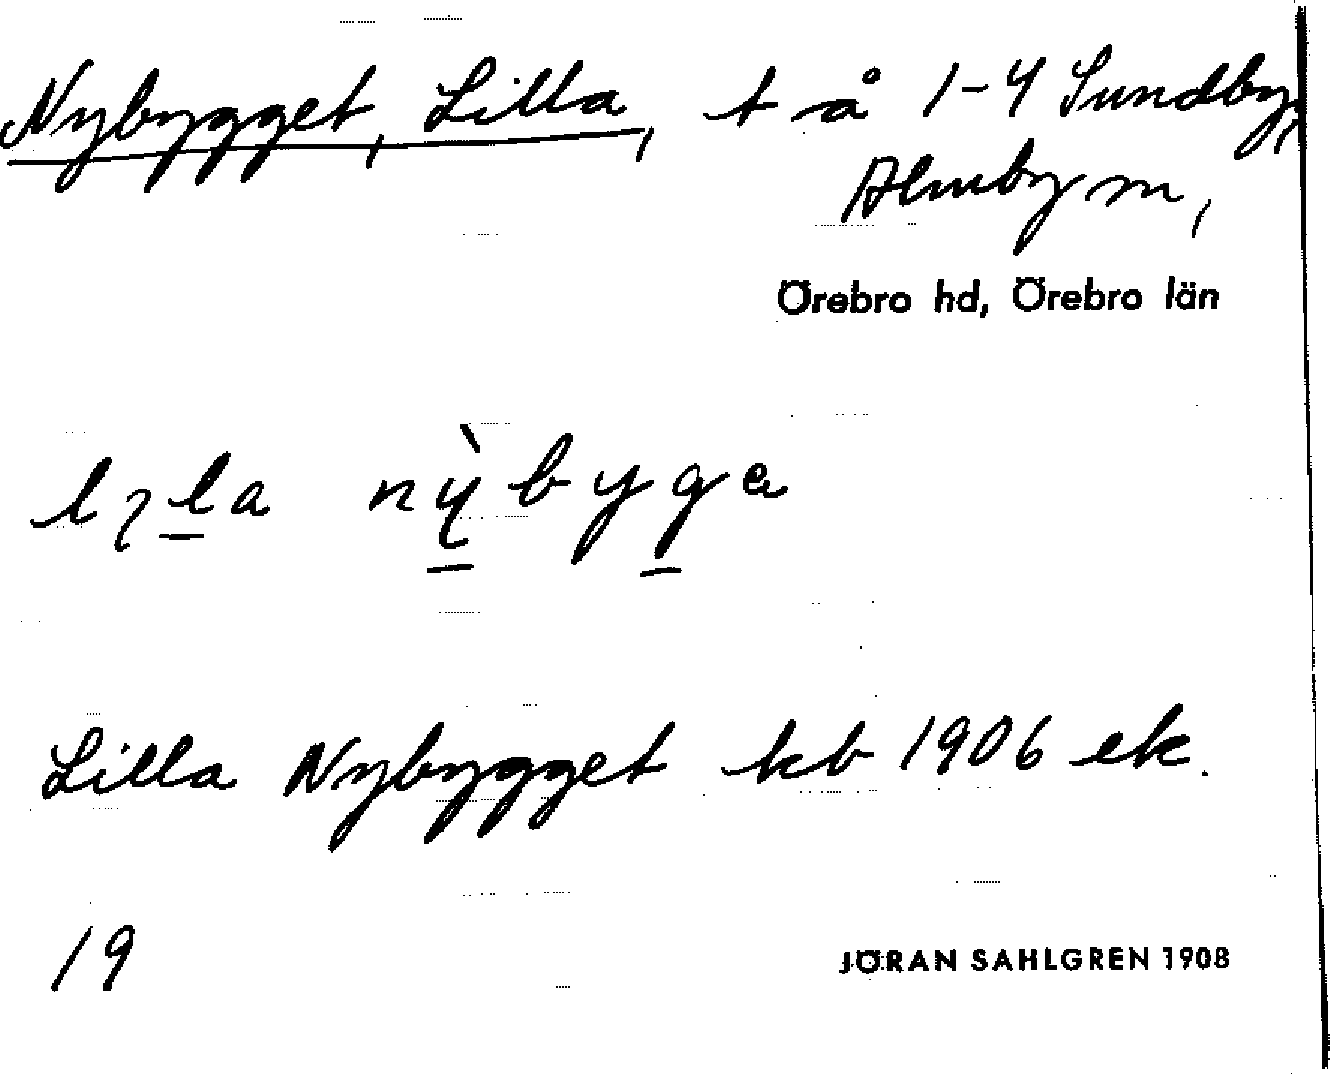 Nybygget, Lilla, t å 1-4 Sundby,
Almby sn,
Örebro hd, Örebro län
Lilla Nybygget kb 1906 ek.
19
JÖRAN SAHLGREN 1908